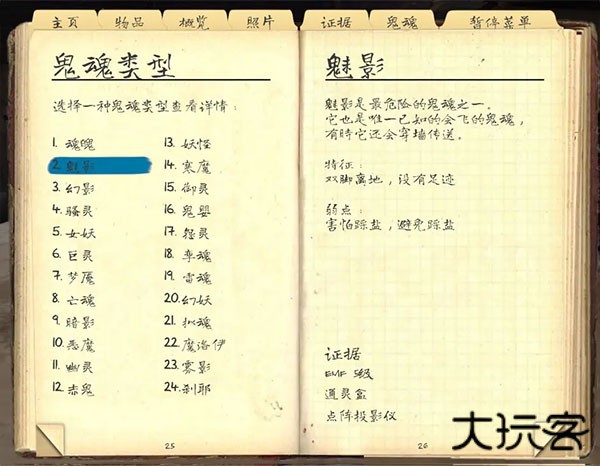 主页 物品 概览 照片 证据 鬼魂 暂停菜单
鬼魂类型
选择一种鬼魂类型查看详情：
1. 魂魄
2. 魅影
3. 幻影
4. 骚灵
5. 女妖
6. 巨灵
7. 梦魇
8. 亡魂
9. 暗影
10. 恶魔
11. 幽灵
12. 赤鬼
13. 妖怪
14. 寒魔
15. 御灵
16. 鬼婴
17. 怨灵
18. 孪魂
19. 雷魂
20. 幻妖
21. 拟魂
22. 魔洛伊
23. 雾影
24. 刹耶
25
魅影
魅影是最危险的鬼魂之一.
它也是唯一已知的会飞的鬼魂，
有时它还会穿墙传送.
特征：
双脚离地，没有足迹
弱点：
害怕踩盐，避免踩盐
证据
EMF 5级
通灵盒
点阵投影仪
26
大玩客